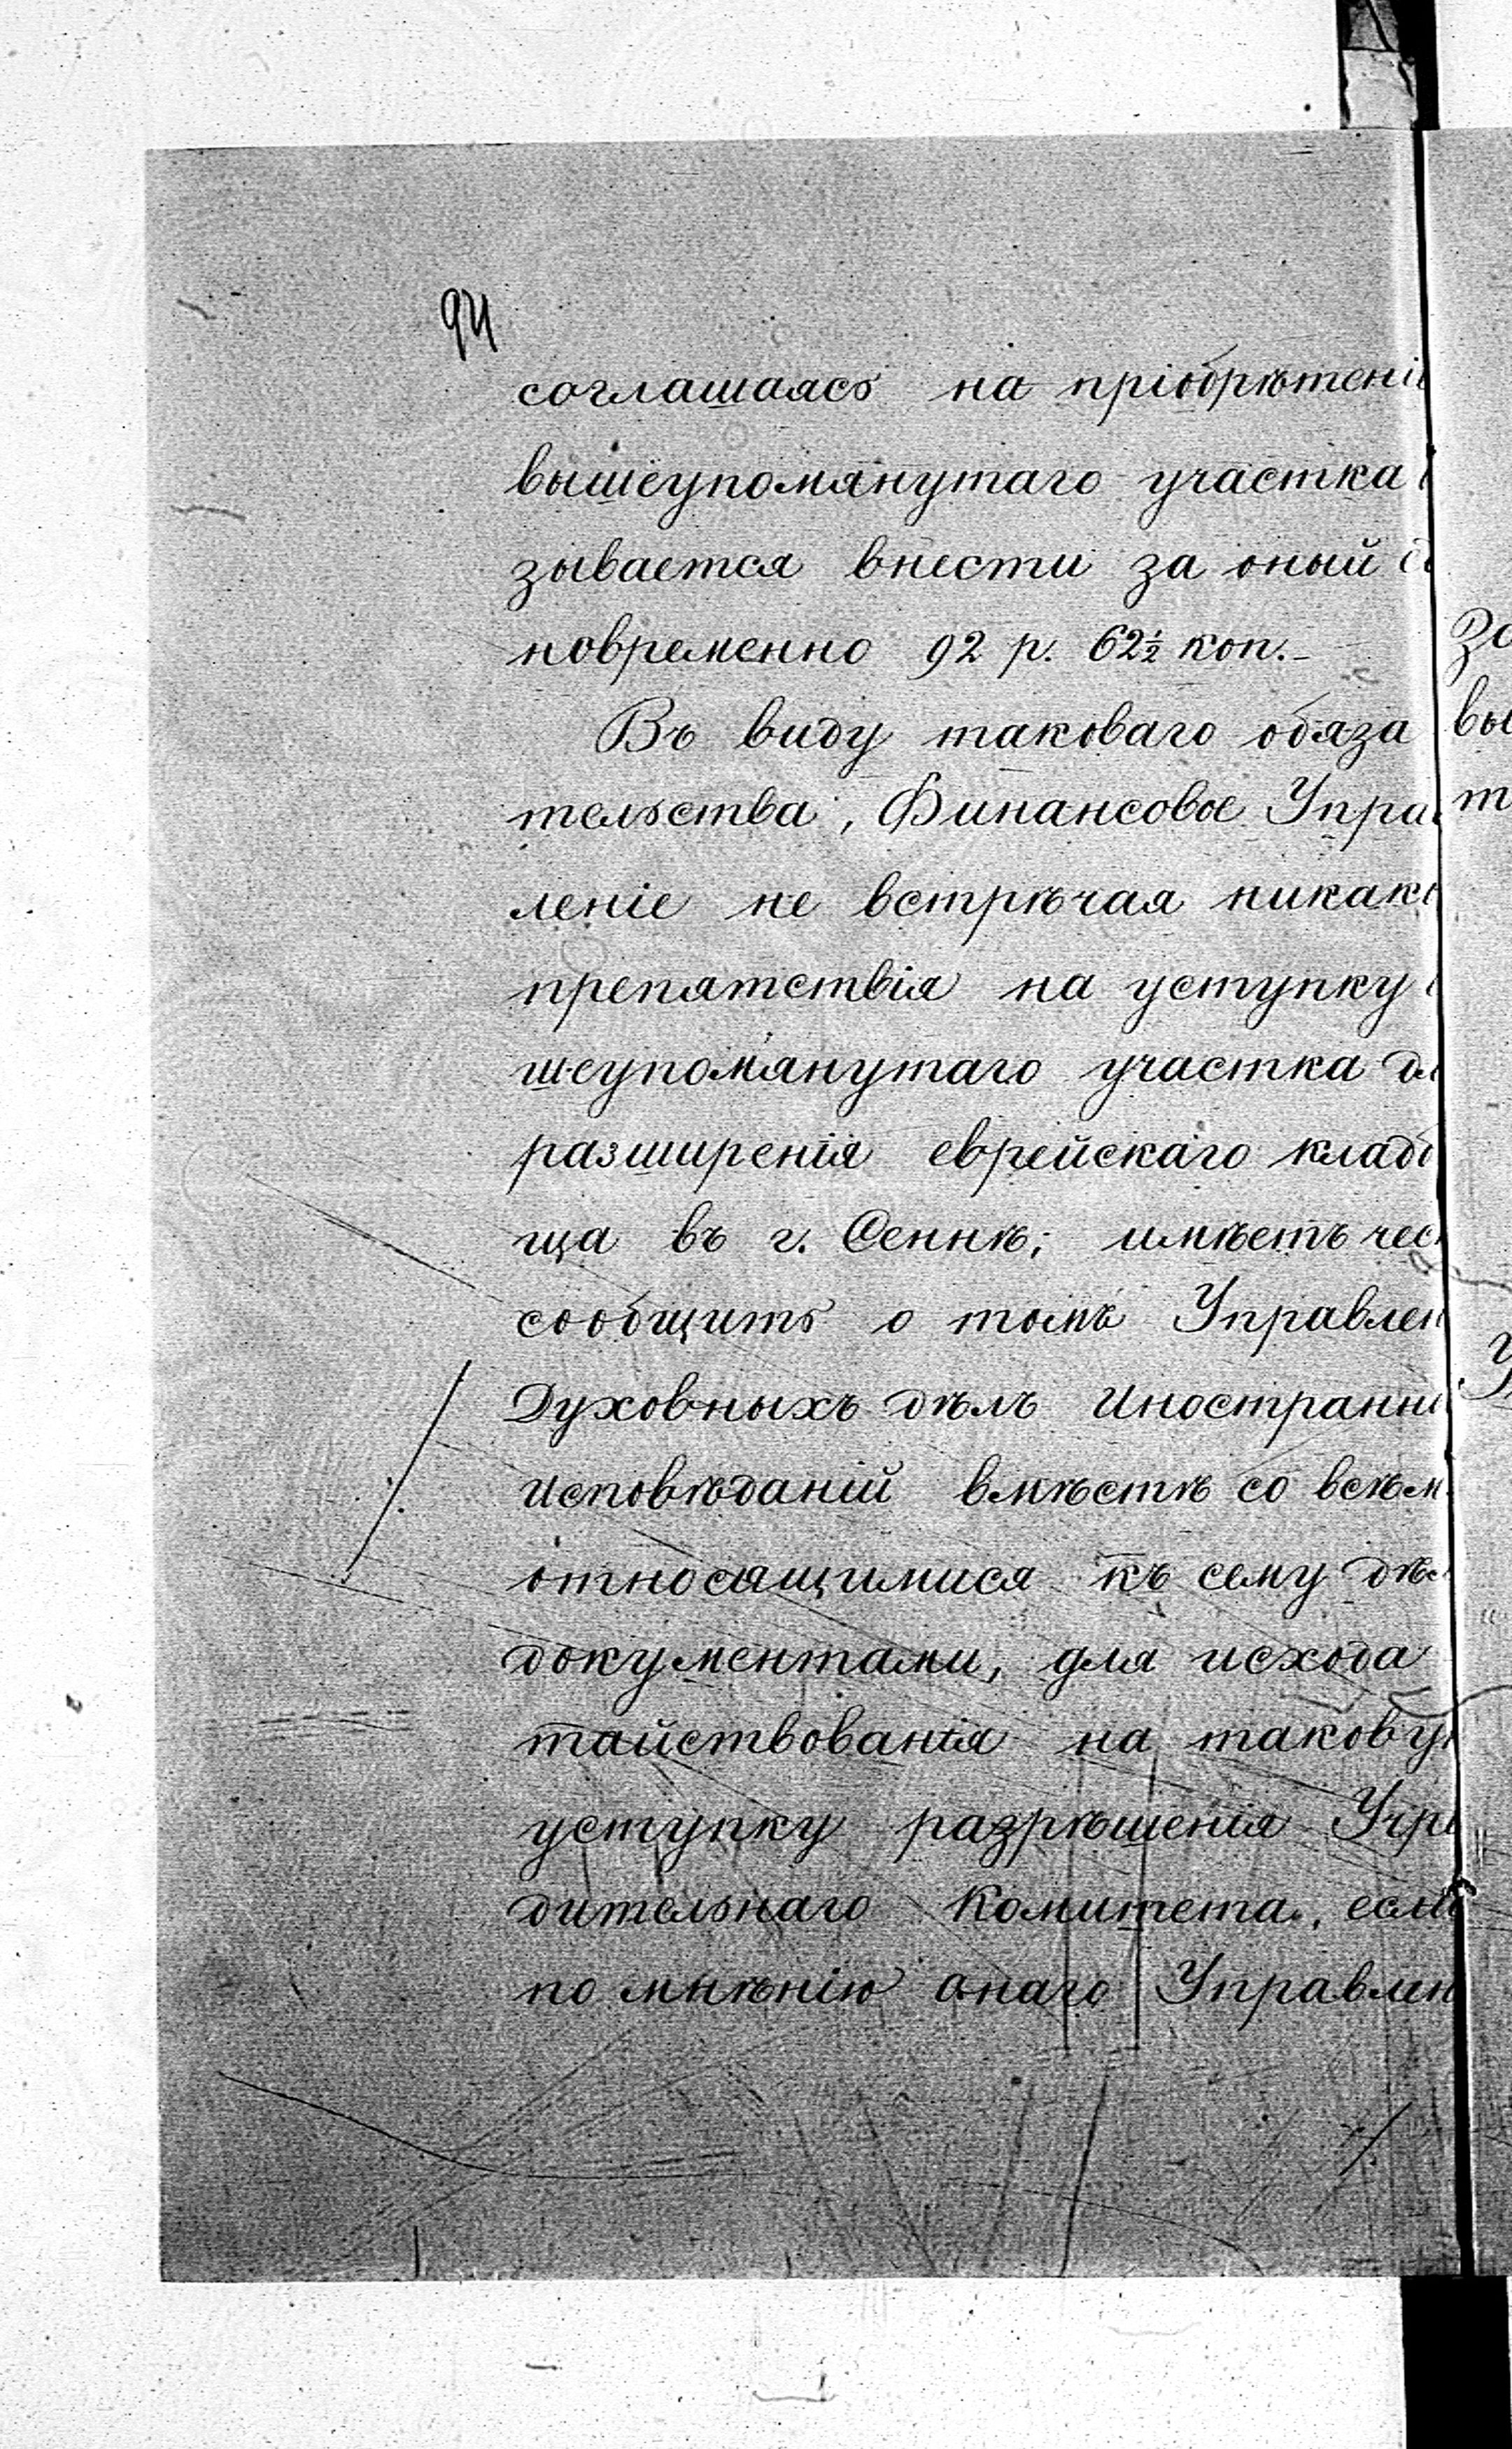 94
соглашаясь на пріобрѣтені
вышеупомянутаго участка
зывается внести за оный
новременно 92 р. 62½ коп.
Въ виду таковаго обяза
тельства, Финансовое Упра
леніе не встрѣчая никак
препятствія на уступку
шеупомянутаго участка
разширенія еврейскаго кладб
ща въ г. Сеннѣ, имѣетъ чес
сообщить о томъ Управлен
Духовныхъ дѣлъ Иностранн
исповѣданій вмѣстѣ со всѣм
относящимися къ сему дѣл
документами, для исхода
тайствованія на таковую
уступку разрѣшенія Учре
дительнаго Комитета, если
по мнѣнію онаго Управлен